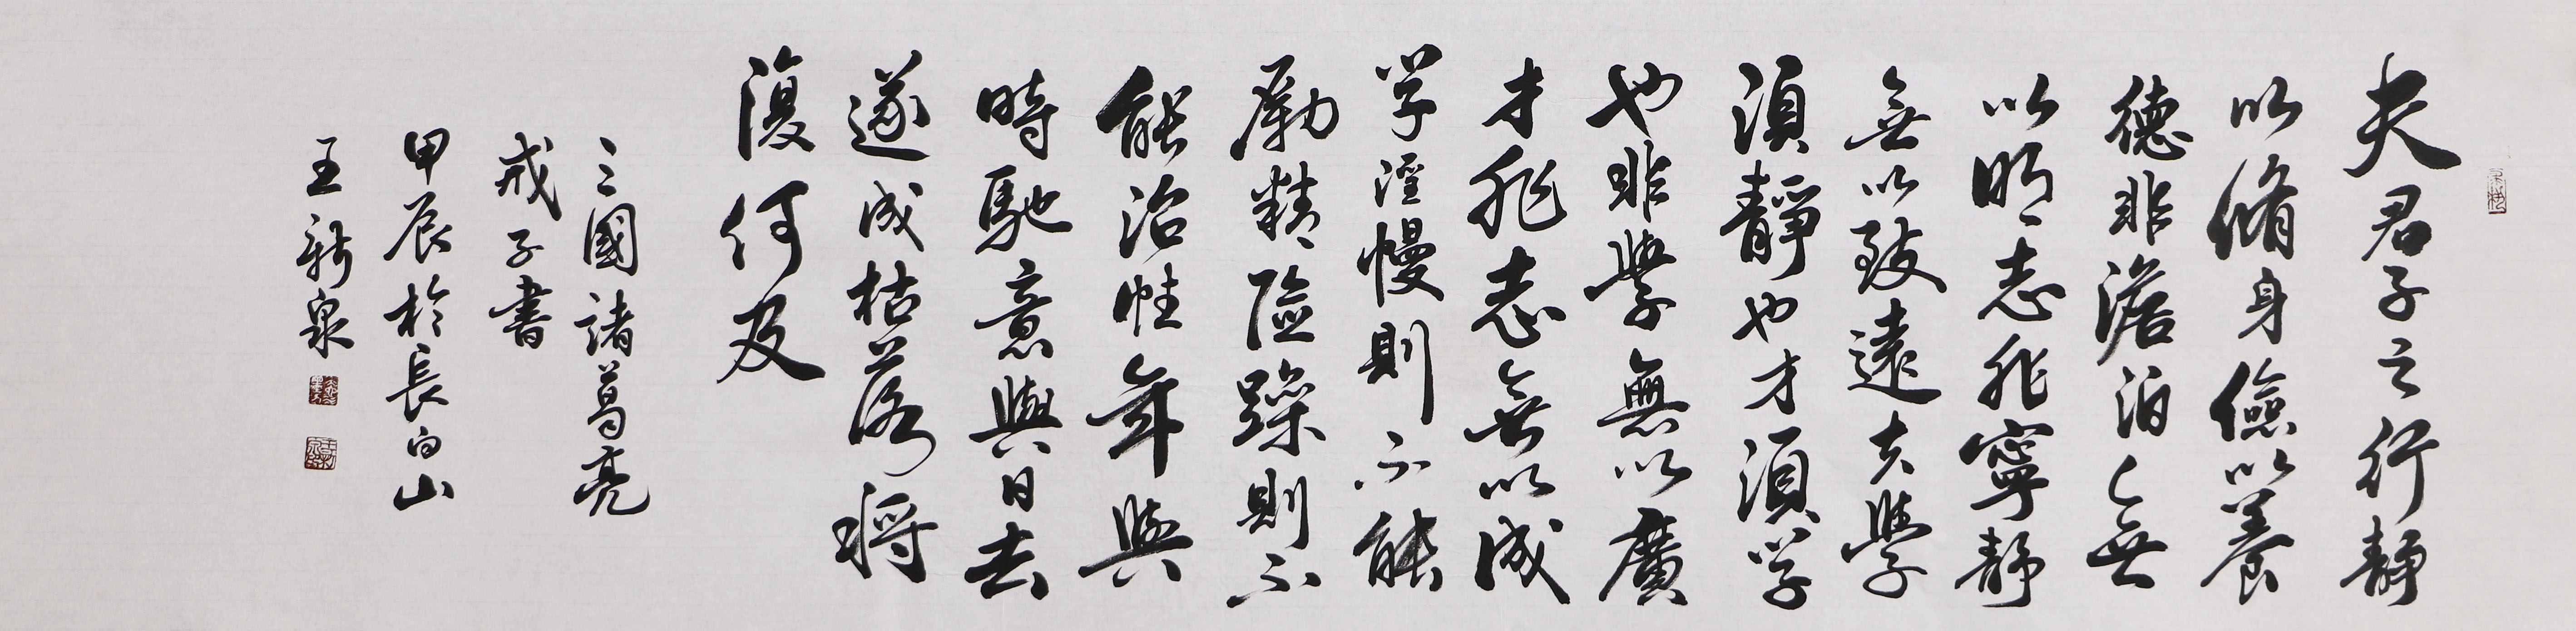 夫君子之行靜
以脩身儉以養
德非澹泊無
以明志非寧靜
無以致遠夫學
須靜也才須学
也非學無以廣
才非志無以成
学淫慢則不能
勵精險躁則不
能治性年與
時馳意與日去
遂成枯落將
復何及
三國諸葛亮
戒子書
甲辰於長白山
王新泉